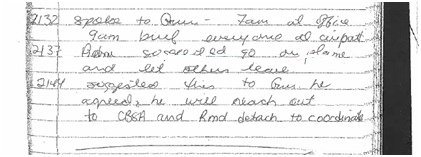 2132 spoke to Gus - 7am at office
9am brief everyone at airport
2137 Adm so wanted go on plane
and let others leave
2144 suggested this to Gus he
agreed, he will reach out
to CBSA and Rmd detach to coordinate